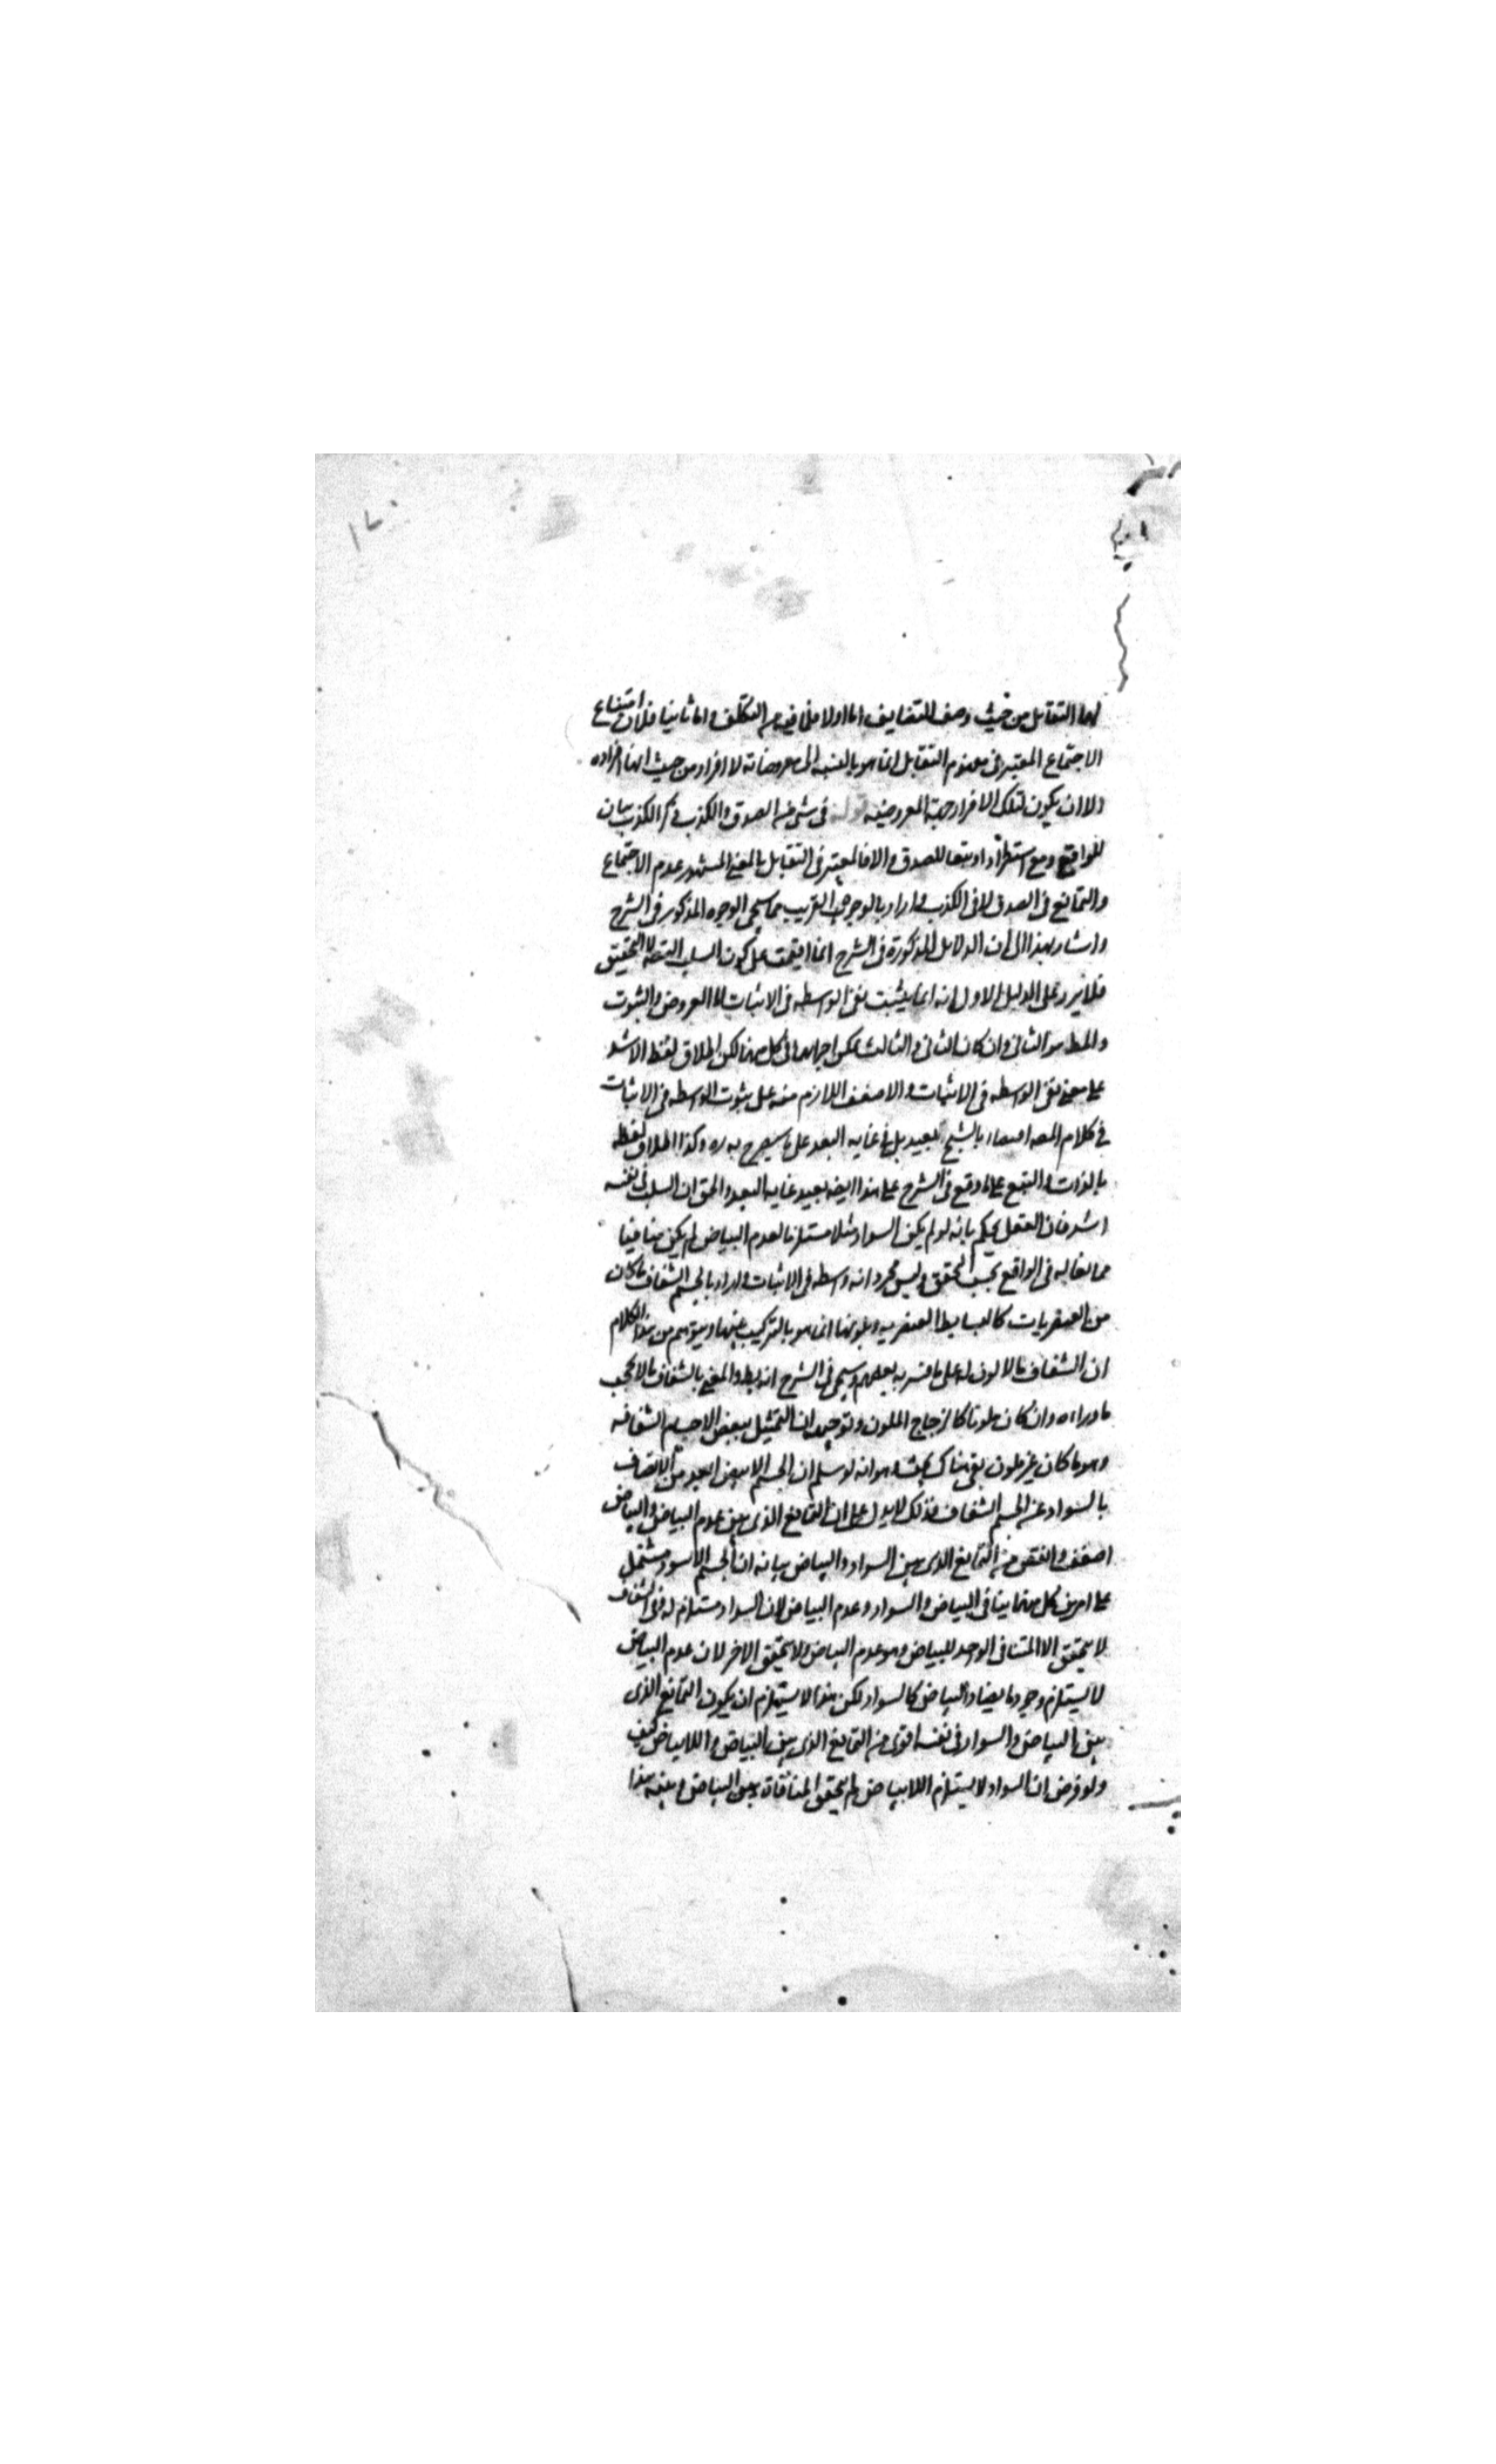 لهما التقابل من حيث وصف التضايف اما اولا فلما فيه من التكلف واما ثانيا فلان امتناع
الاجتماع المعتبر فى مفهوم التقابل انما هو بالنسبة الى معروضاته لا افراده من حيث انها افراده
الا ان يكون لتلك الافراد جهة المعروضيه قوله فى شئ من الصدق والكذب ذكر الكذب بيان
للواقع ومع استطرادا وتبعا للصدق والا فالمعتبر فى التقابل بالمعنى المشهور عدم الاجتماع
والتمانع فى الصدق لا فى الكذب واراد بالوجه القريب مما سيجى الوجوه المذكور فى الشرح
واشار بهذا الى ان الدلايل المذكورة فى الشرح انما اقيمت على كون السلب التحقيق
فلا يرد على الدليل الاول انه انما يثبت نفى الواسطه فى الاثبات لا العروض والثبوت
والمط هو الثانى وان كان الثانى والثالث يمكن اجراهما فى كل منهما لكن اطلاق لفظ الاشد
على معنى نفى الواسطه فى الاثبات والاضعف اللازم منه على ثبوت الواسطه فى الاثبات
فى كلام المصه بالشيخ بعيد بل فى غايه البعد على ما سيصرح به ره وكذا اطلاق لفظه
بالذات والتبع على ما وقع فى الشرح على هذا ايضه بعيد غايه البعد والحق ان السلب فى نفسه
اشد فان العقل يحكم بانه لو لم يكن السواد مثلا مستلزما لعدم البياض لم يكن منافيا
مما يقابله فى الواقع بحسب التحقق وليس مجرد انه واسطه فى الاثبات واراد بالجسم الشفاف ما كان
من العنصريات كالبسايط العنصريه وتلونها انما هو بالتركيب ويتوهم من هذا الكلام
ان الشفاف ما لا لون له على ما فسر به بعضهم وسيجى فى الشرح انه بط والمعنى بالشفاف ما لا يحجب
ما وراءه وان كان ملونا كالزجاج الملون وتوجيهه ان التمثيل ببعض الاجسام الشفافه
وهو ما كان غير ملون بقى هناك بحث وهو انه لو سلم ان الجسم الابيض ابعد من الاتصاف
بالسواد عن الجسم الشفاف فذلك لا يدل على ان التمانع الذى بين عدم البياض والبياض
اضعف وانقص من التمانع الذى بين السواد والبياض بيانه ان الجسم الاسود مشتمل
على امرين كل منهما ينافى البياض والسواد وعدم البياض لان السواد مستلزم له وفى الشفاف
لا يتحقق الا المنافى الواحد للبياض وهو عدم البياض ولا يتحقق الاخر لان عدم البياض
لا يستلزم وجود ما يضاد البياض كالسواد لكن هذا لا يستلزم ان يكون التمانع الذى
بين البياض والسواد فى نفسه اقوى من التمانع الذى بين البياض واللابياض كيف
ولو فرض ان السواد لا يستلزم اللابياض لم يتحقق المنافاة بين البياض وبينه هذا